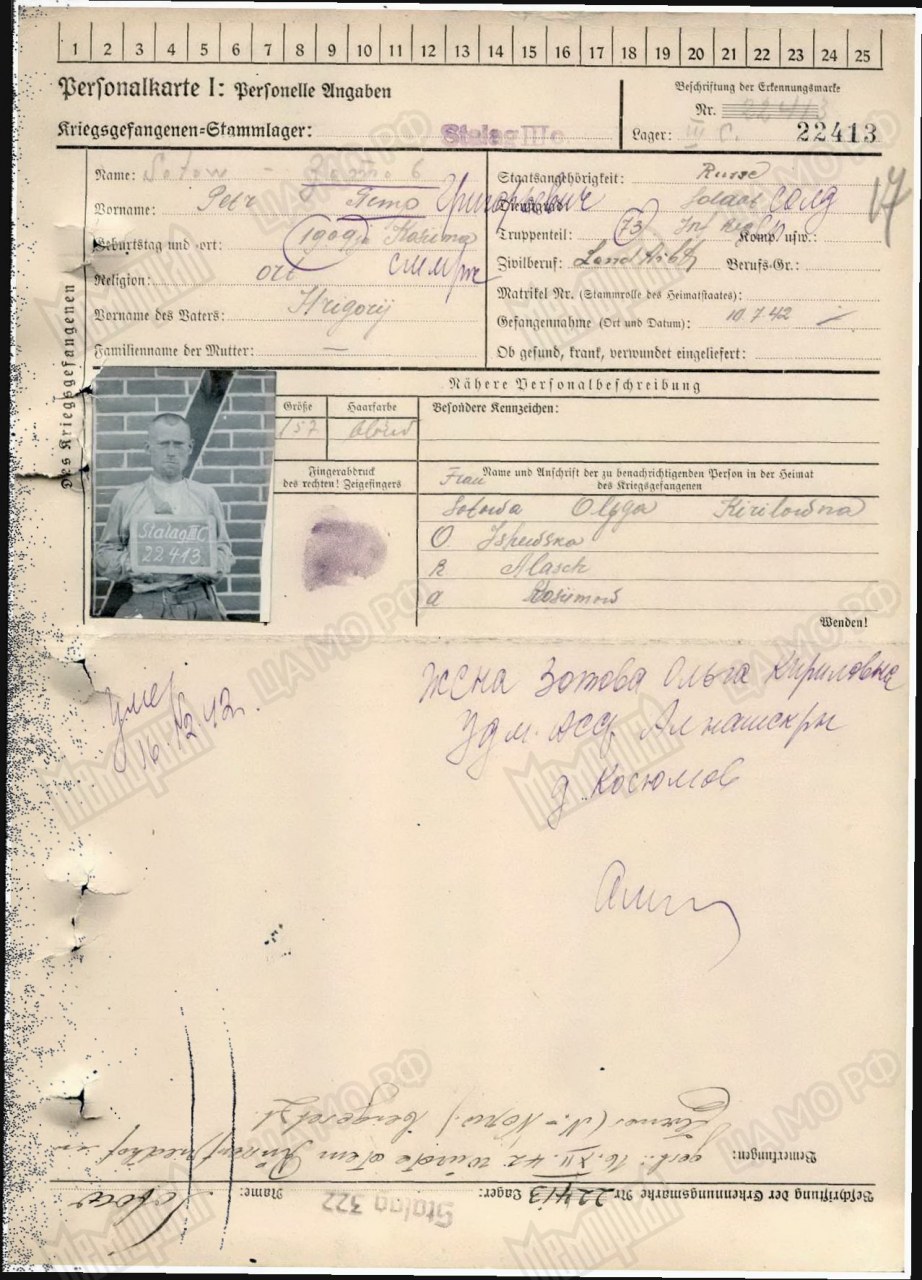 1 2 3 4 5 6 7 8 9 10 11 12 13 14 15 16 17 18 19 20 21 22 23 24 25
Personalkarte I: Personelle Angaben
Beschriftung der Erkennungsmarke
Nr. 22413
Kriegsgefangenen-Stammlager: Stalag III C
Lager: III C. 22413
Des Kriegsgefangenen
Name: Sotow - Зотов
Vorname: Petr Петр Григорьевич
Geburtstag und -ort: 1909
Religion: ort
Vorname des Vaters: Hrigorij
Familienname der Mutter: —
Staatsangehörigkeit: Russe
Dienstgrad: Soldat солд
17
Truppenteil: 73 Inf Reg Komp. usw.:
Zivilberuf: Berufs-Gr.:
Matrikel Nr. (Stammrolle des Heimatstaates):
Gefangennahme (Ort und Datum): 10.7.42
Ob gesund, krank, verwundet eingeliefert:
Nähere Personalbeschreibung
Größe Haarfarbe Besondere Kennzeichen:
157 blond
Stalag III C
22413
Fingerabdruck
des rechten! Zeigefingers
Name und Anschrift der zu benachrichtigenden Person in der Heimat
des Kriegsgefangenen
Frau
Sotowa Olga Kirilowna
O
R Alasch
a
Wenden!
умер
16.12.42.
Жена Зотова Ольга Кириловна
Удм. АССР Алнашск р-н
д. Косюмов
Bemerkungen: gest. 16.XII.42 wurde a. dem Friedhof in
(N.-Norw.) beigesetzt
Beschriftung der Erkennungsmarke Nr. 22413 Lager: Stalag 322 Name: Sotow
ЦАМО РФ
Мемориал